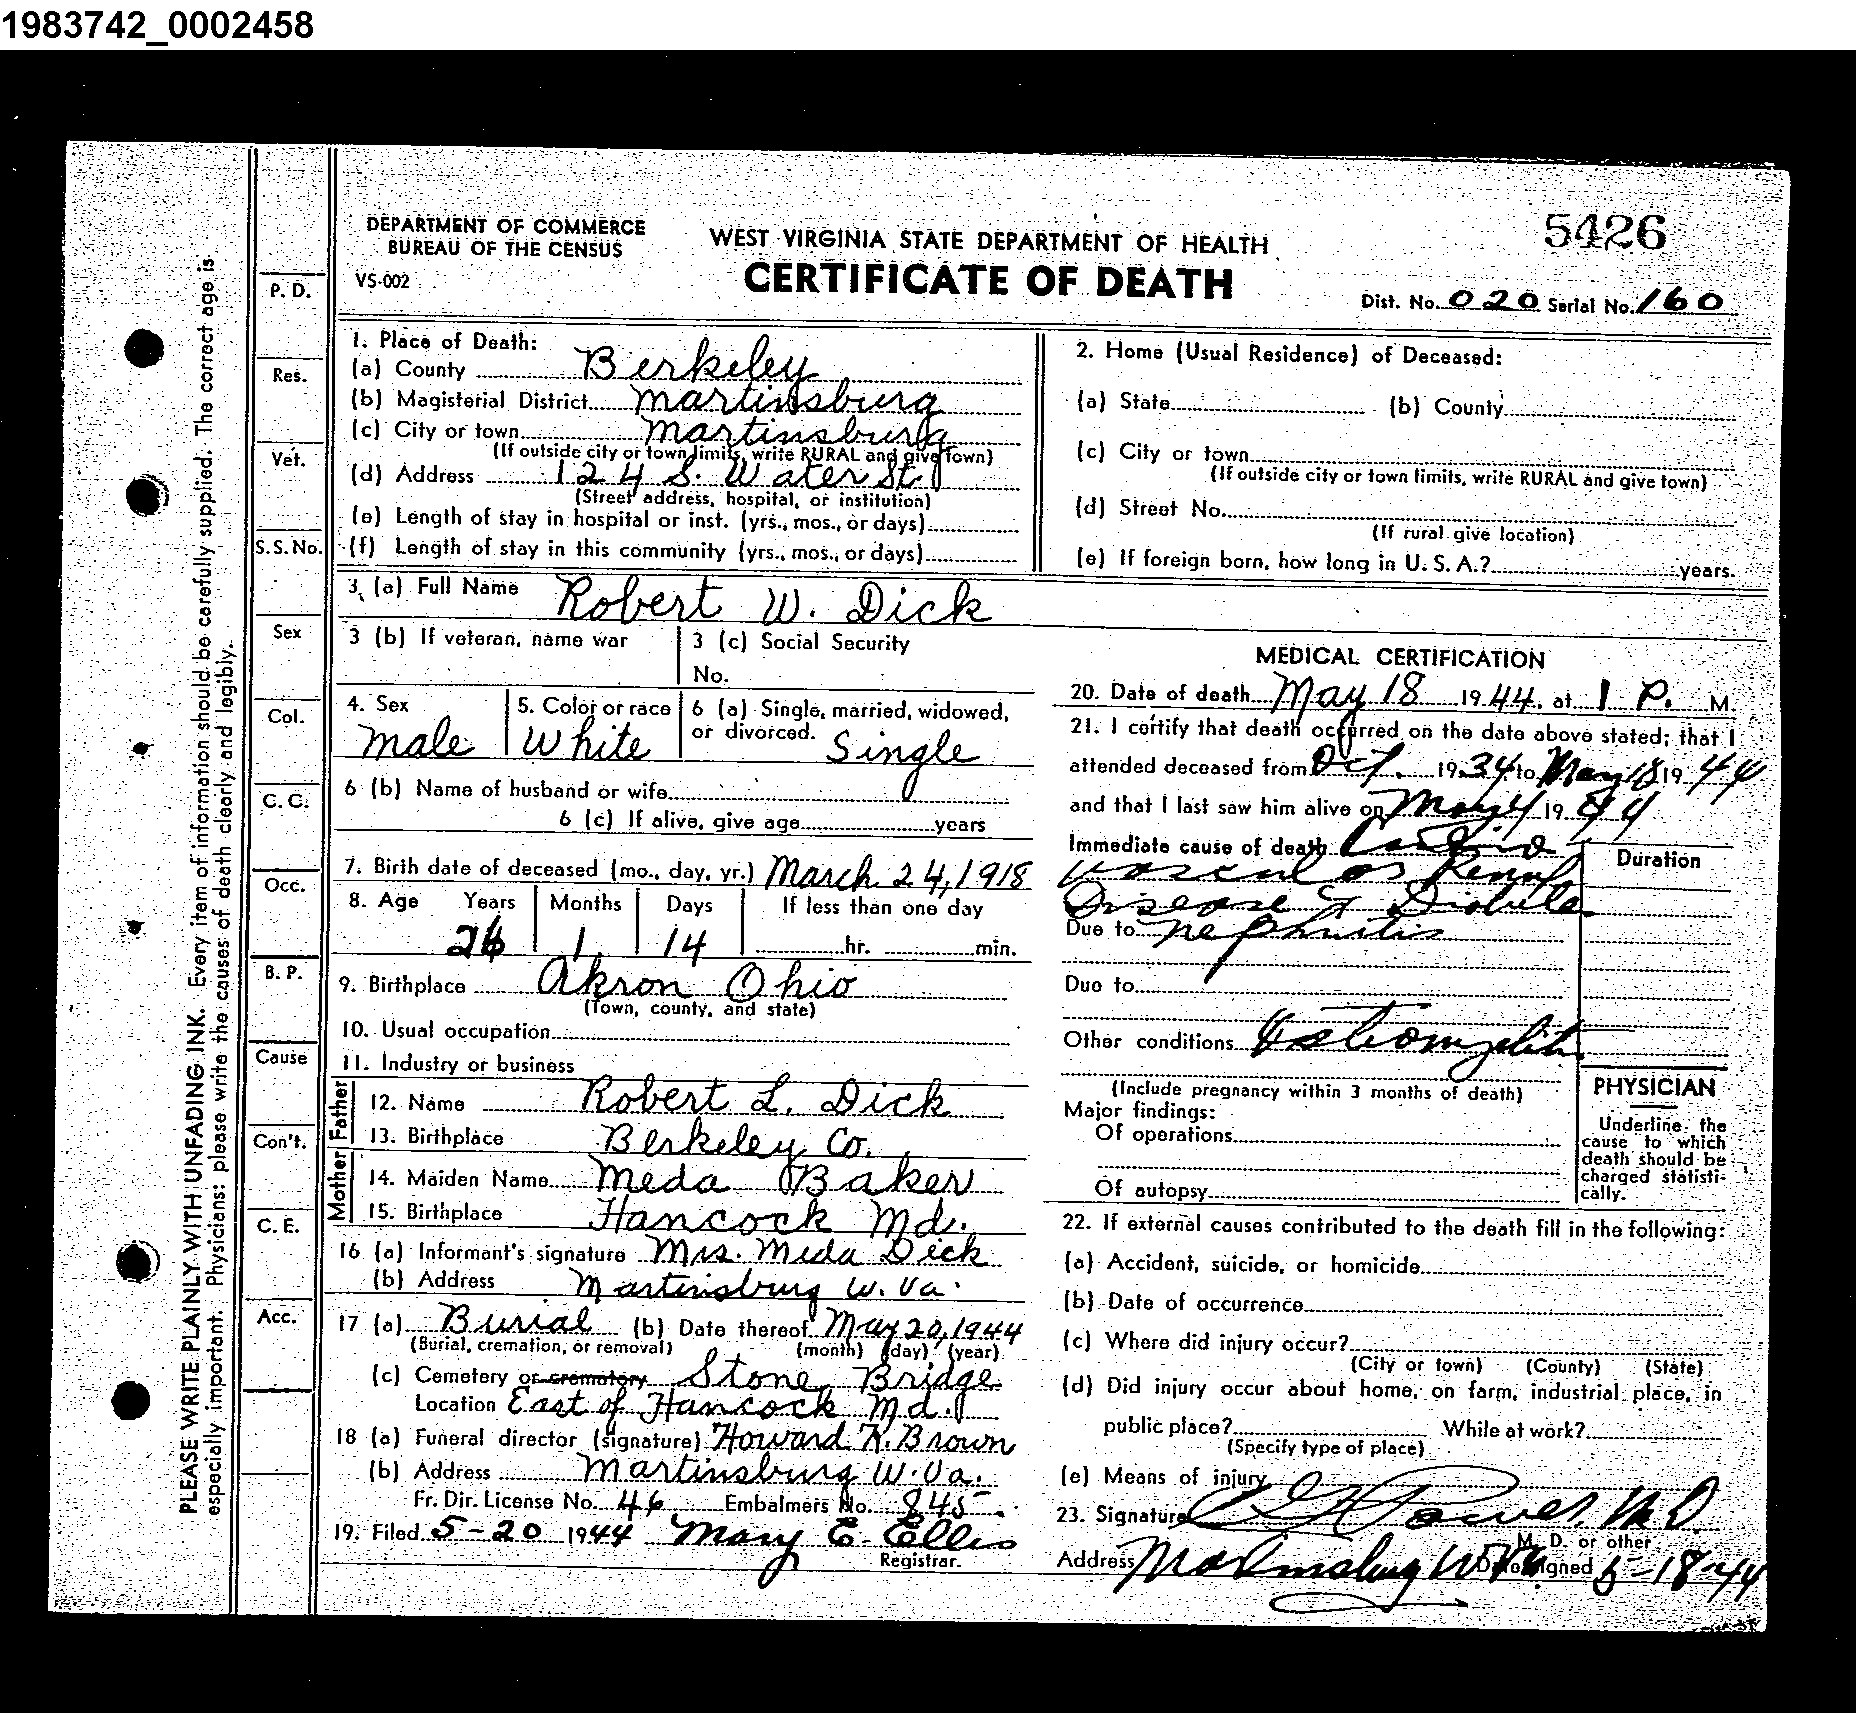 1983742_0002458
DEPARTMENT OF COMMERCE
BUREAU OF THE CENSUS
VS-002
WEST VIRGINIA STATE DEPARTMENT OF HEALTH
CERTIFICATE OF DEATH
5426
Dist. No. 020 Serial No. 160
PLEASE WRITE PLAINLY WITH UNFADING INK. Every item of information should be carefully supplied. The correct age is
especially important. Physicians: please write the causes of death clearly and legibly.
P. D.
Res.
Vet.
S.S.No.
Sex
Col.
C. C.
Occ.
B. P.
Cause
Con't.
C. E.
Acc.
1. Place of Death:
(a) County Berkeley
(b) Magisterial District Martinsburg
(c) City or town Martinsburg
(If outside city or town limits, write RURAL and give town)
(d) Address 124 S. Water St.
(Street address, hospital, or institution)
(e) Length of stay in hospital or inst. (yrs., mos., or days)
(f) Length of stay in this community (yrs., mos., or days)
2. Home (Usual Residence) of Deceased:
(a) State (b) County
(c) City or town
(If outside city or town limits, write RURAL and give town)
(d) Street No.
(If rural give location)
(e) If foreign born, how long in U. S. A.? years.
3. (a) Full Name Robert W. Dick
3 (b) If veteran, name war
3 (c) Social Security
No.
4. Sex
Male
5. Color or race
White
6 (a) Single, married, widowed,
or divorced. Single
6 (b) Name of husband or wife
6 (c) If alive, give age years
7. Birth date of deceased (mo., day, yr.) March 24, 1918
8. Age Years Months Days If less than one day
26 1 14 hr. min.
9. Birthplace Akron Ohio
(Town, county, and state)
10. Usual occupation
11. Industry or business
Father
12. Name Robert L. Dick
13. Birthplace Berkeley Co.
Mother
14. Maiden Name Meda Baker
15. Birthplace Hancock Md.
16 (a) Informant's signature Mrs. Meda Dick
(b) Address Martinsburg W. Va.
17 (a) Burial (b) Date thereof May 20, 1944
(Burial, cremation, or removal) (month) (day) (year)
(c) Cemetery or crematory Stone Bridge
Location East of Hancock Md.
18 (a) Funeral director (signature) Howard K. Brown
(b) Address Martinsburg W. Va.
Fr. Dir. License No. 46 Embalmers No. 845
19. Filed 5-20 1944 Mary E. Ellis
Registrar.
MEDICAL CERTIFICATION
20. Date of death May 18 1944, at 1 P. M.
21. I certify that death occurred on the date above stated; that I
attended deceased from Oct. 1934 to May 18 1944
and that I last saw him alive on May 4 1944
Immediate cause of death Cardio
vascular Renal
Disease & Diabetes
Due to nephritis
Due to
Other conditions Osteomyelitis
(Include pregnancy within 3 months of death)
Major findings:
Of operations
Of autopsy
Duration
PHYSICIAN
Underline the
cause to which
death should be
charged statisti-
cally.
22. If external causes contributed to the death fill in the following:
(a) Accident, suicide, or homicide
(b) Date of occurrence
(c) Where did injury occur?
(City or town) (County) (State)
(d) Did injury occur about home, on farm, industrial place, in
public place? While at work?
(Specify type of place)
(e) Means of injury
23. Signature Power, M.D.
M. D. or other
Address Martinsburg W Va Date signed 5-18-44